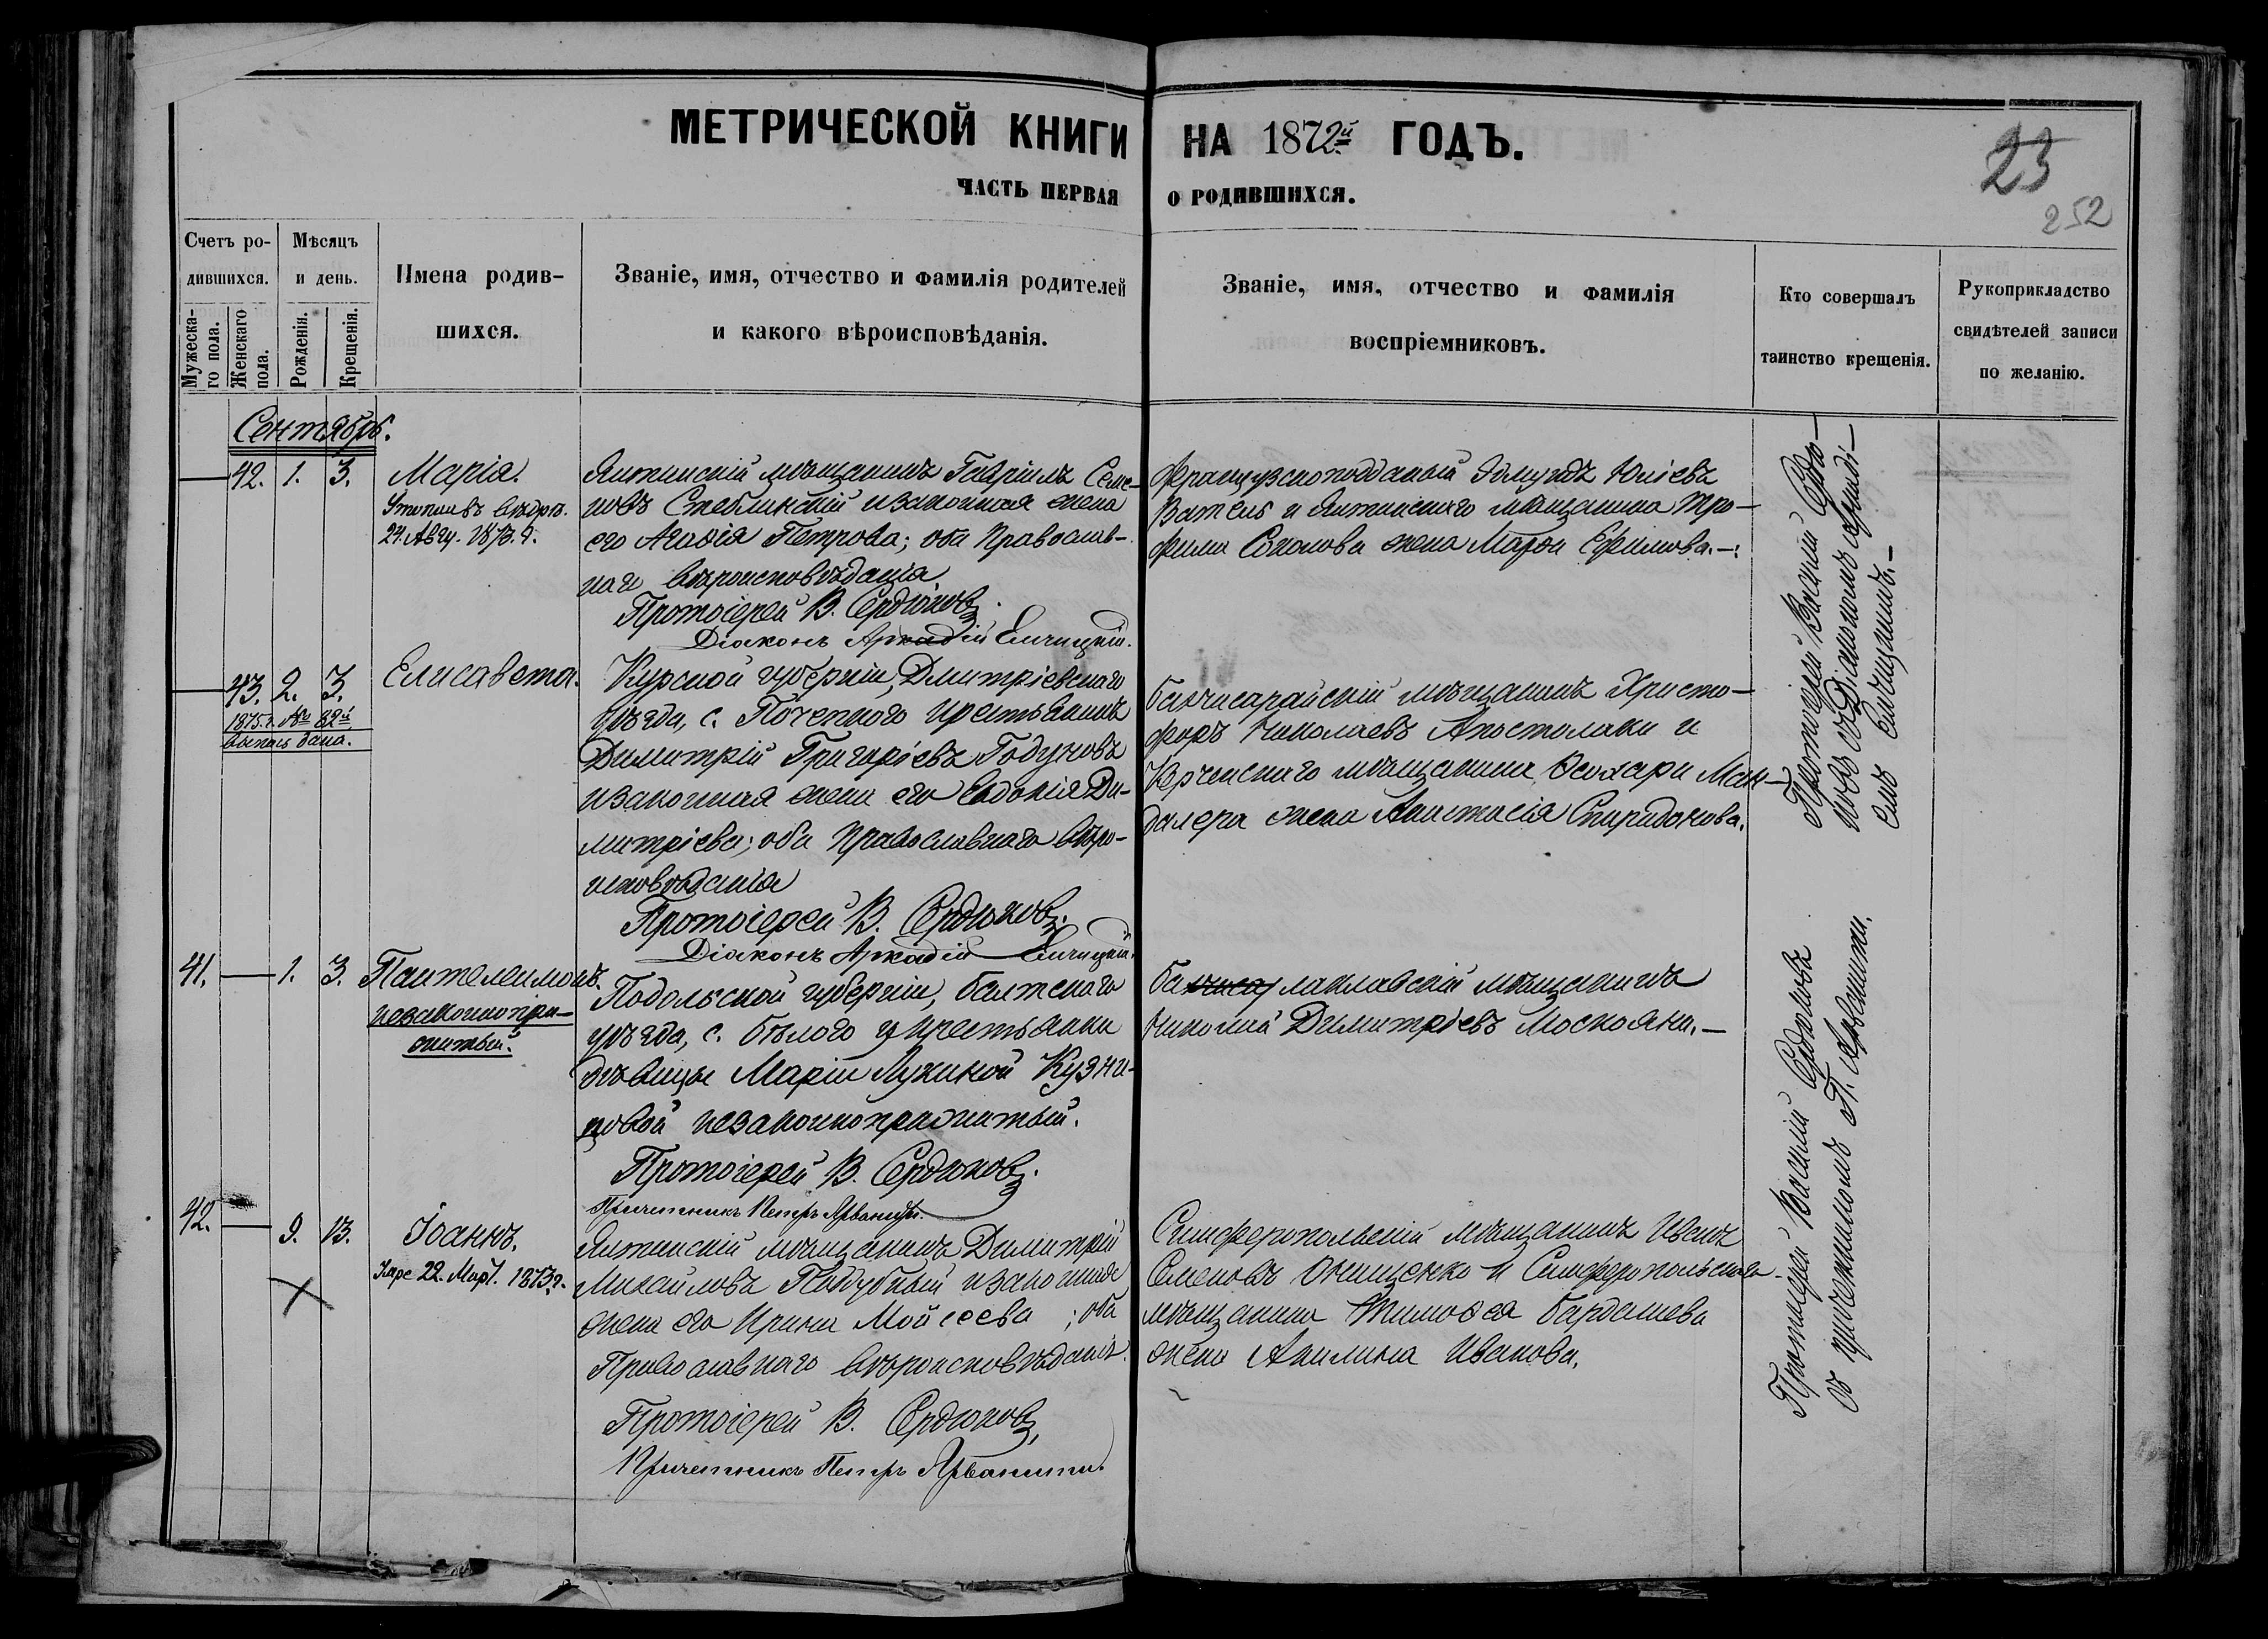 МЕТРИЧЕСКОЙ КНИГИ НА 1872й ГОДЪ.
ЧАСТЬ ПЕРВАЯ О РОДИВШИХСЯ.
23
252
Счетъ ро-
дившихся.
Мужеска-
го пола.
Женскаго
пола.
Мѣсяцъ
и день.
Рожденія.
Крещенія.
Имена родив-
шихся.
Званіе, имя, отчество и фамилія родителей
и какого вѣроисповѣданія.
Званіе, имя, отчество и фамилія
воспріемниковъ.
Кто совершалъ
таинство крещенія.
Рукоприкладство
свидѣтелей записи
по желанію.
Сентябрь.
42. 1. 3.
Марія.
24. Авгу. 1873. г.
Ялтинскій мѣщанинъ Гавріилъ Семе-
новъ Стеблинскій и законная жена
его Агафія Петрова; оба Православ-
наго вѣроисповѣданія.
Протоіерей В. Сердюковъ.
Діаконъ Аркадій Енчицкій.
Французскоподданый Юліевъ
и Ялтинскаго мѣщанина Тро-
фима Соколова жена Марѳа Ефимова.
43. 2. 3.
1875 г. № 82й
выпись дана.
Елисавета.
Курской губерніи, Дмитріевскаго
уѣзда, с. крестьянинъ
Димитрій Григоріевъ Годуновъ
и законная жена его Евдокія Ди-
митріева; оба Православнаго вѣро-
исповѣданія
Протоіерей В. Сердюковъ.
Діаконъ Аркадій Енчицкій.
бахчисарайскій мѣщанинъ Христо-
форъ Николаевъ Апостолаки и
Керченскаго мѣщанина Ман-
далера жена Анастасія Спиридонова.
Протоіерей Василій Сердю-
ковъ съ Діакономъ Аркаді-
емъ Енчицкимъ.
41. 1. 3.
Пантелеимонъ.
незаконнопри-
житый.
Подольской губерніи, балтскаго
уѣзда, с. бѣлого у крестьянки
дѣвицы Маріи Лукиной Кузни-
цовой незаконноприжитый.
Протоіерей В. Сердюковъ.
Причетникъ Петръ Арванити.
балаклавскій мѣщанинъ
Николай Димитріевъ Москояни.
42. 9. 13.
Іоаннъ.
22. Март. 1873 г.
Ялтинскій мѣщанинъ Димитрій
Михайловъ Поддубный и законная
жена его Ирина Мойсеева; оба
Православнаго вѣроисповѣданія.
Протоіерей В. Сердюковъ,
Причетникъ Петръ Арванити.
Симферопольскій мѣщанинъ Иванъ
Семеновъ Онищенко и Симферопольскаго
мѣщанина Тимофея Бардашева
жена Акилина Иванова.
Протоіерей Василій Сердюковъ
съ причетникомъ П. Арванити.